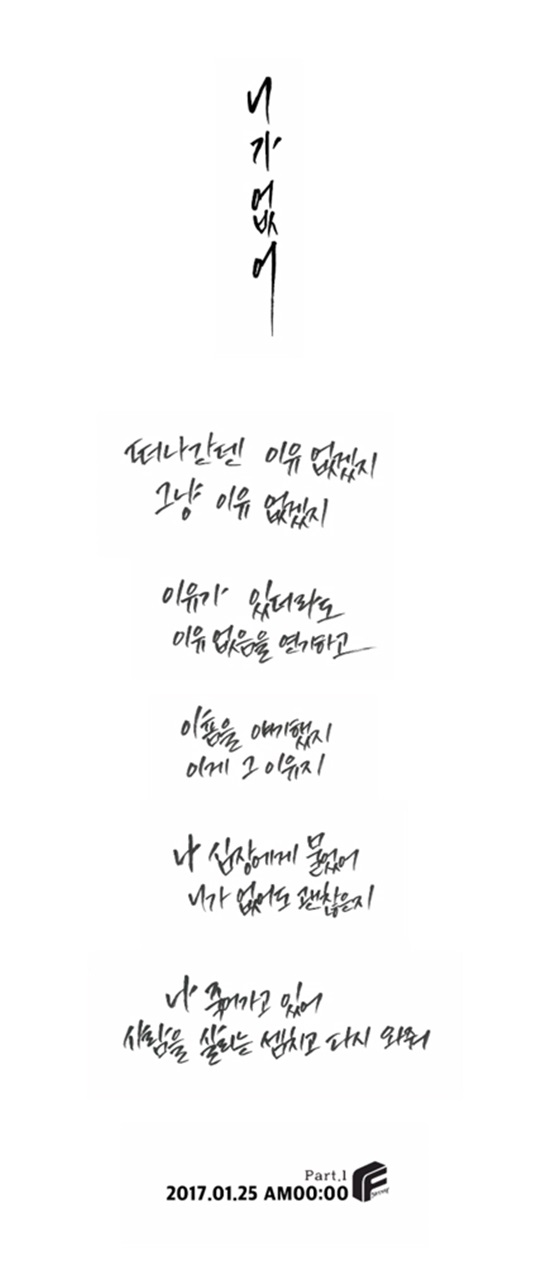 니가 없어
떠나간덴 이유 없겠지
그냥 이유 없겠지
이유가 있더라도
이유 없음을 연기하고
이쁨을 얘기했지
이게 그 이유지
나 심장에게 물었어
니가 없어도 괜찮은지
나 죽어가고 있어
사람을 살리는 셈치고 다시 와줘
Part.1
2017.01.25 AM00:00